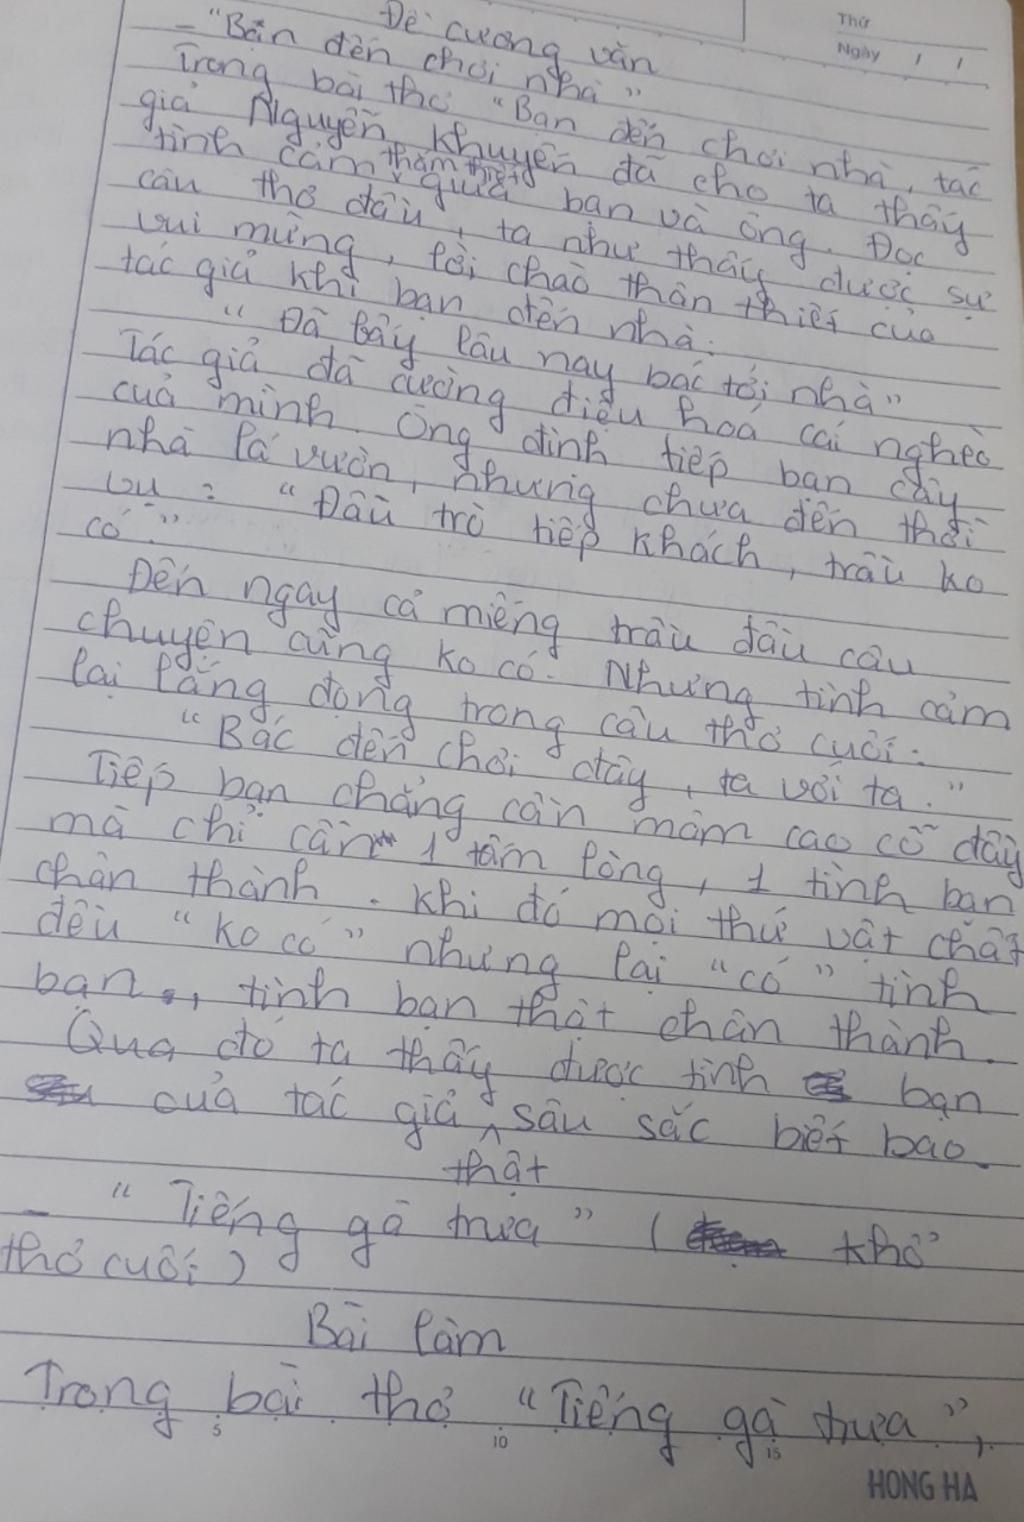 Thứ
Ngày / /
Đề cương văn
- "Bạn đến chơi nhà"
Trong bài thơ "Bạn đến chơi nhà, tác
giả Nguyễn Khuyến đã cho ta thấy
tình cảm thắm thiết giữa bạn và ông. Đọc
câu thơ đầu, ta như thấy được sự
vui mừng, lời chào thân thiết của
tác giả khi bạn đến nhà:
"Đã bấy lâu nay bác tới nhà"
Tác giả đã cường điệu hoá cái nghèo
của mình. Ông định tiếp bạn cây
nhà lá vườn, nhưng chưa đến thời
vụ: "Đầu trò tiếp khách, trầu ko
có."
Đến ngay cả miếng trầu đầu câu
chuyện cũng ko có. Nhưng tình cảm
lại lắng đọng trong câu thơ cuối:
"Bác đến chơi đây, ta với ta."
Tiếp bạn chẳng cần mâm cao cỗ đầy
mà chỉ cần 1 tấm lòng, 1 tình bạn
chân thành. Khi đó mọi thứ vật chất
đều "ko có" nhưng lại "có" tình
bạn, tình bạn thật chân thành.
Qua đó ta thấy được tình bạn
của tác giả thật sâu sắc biết bao.
- "Tiếng gà trưa" ( khổ
thơ cuối)
Bài làm
Trong bài thơ "Tiếng gà trưa",
5 10 15
HONG HA